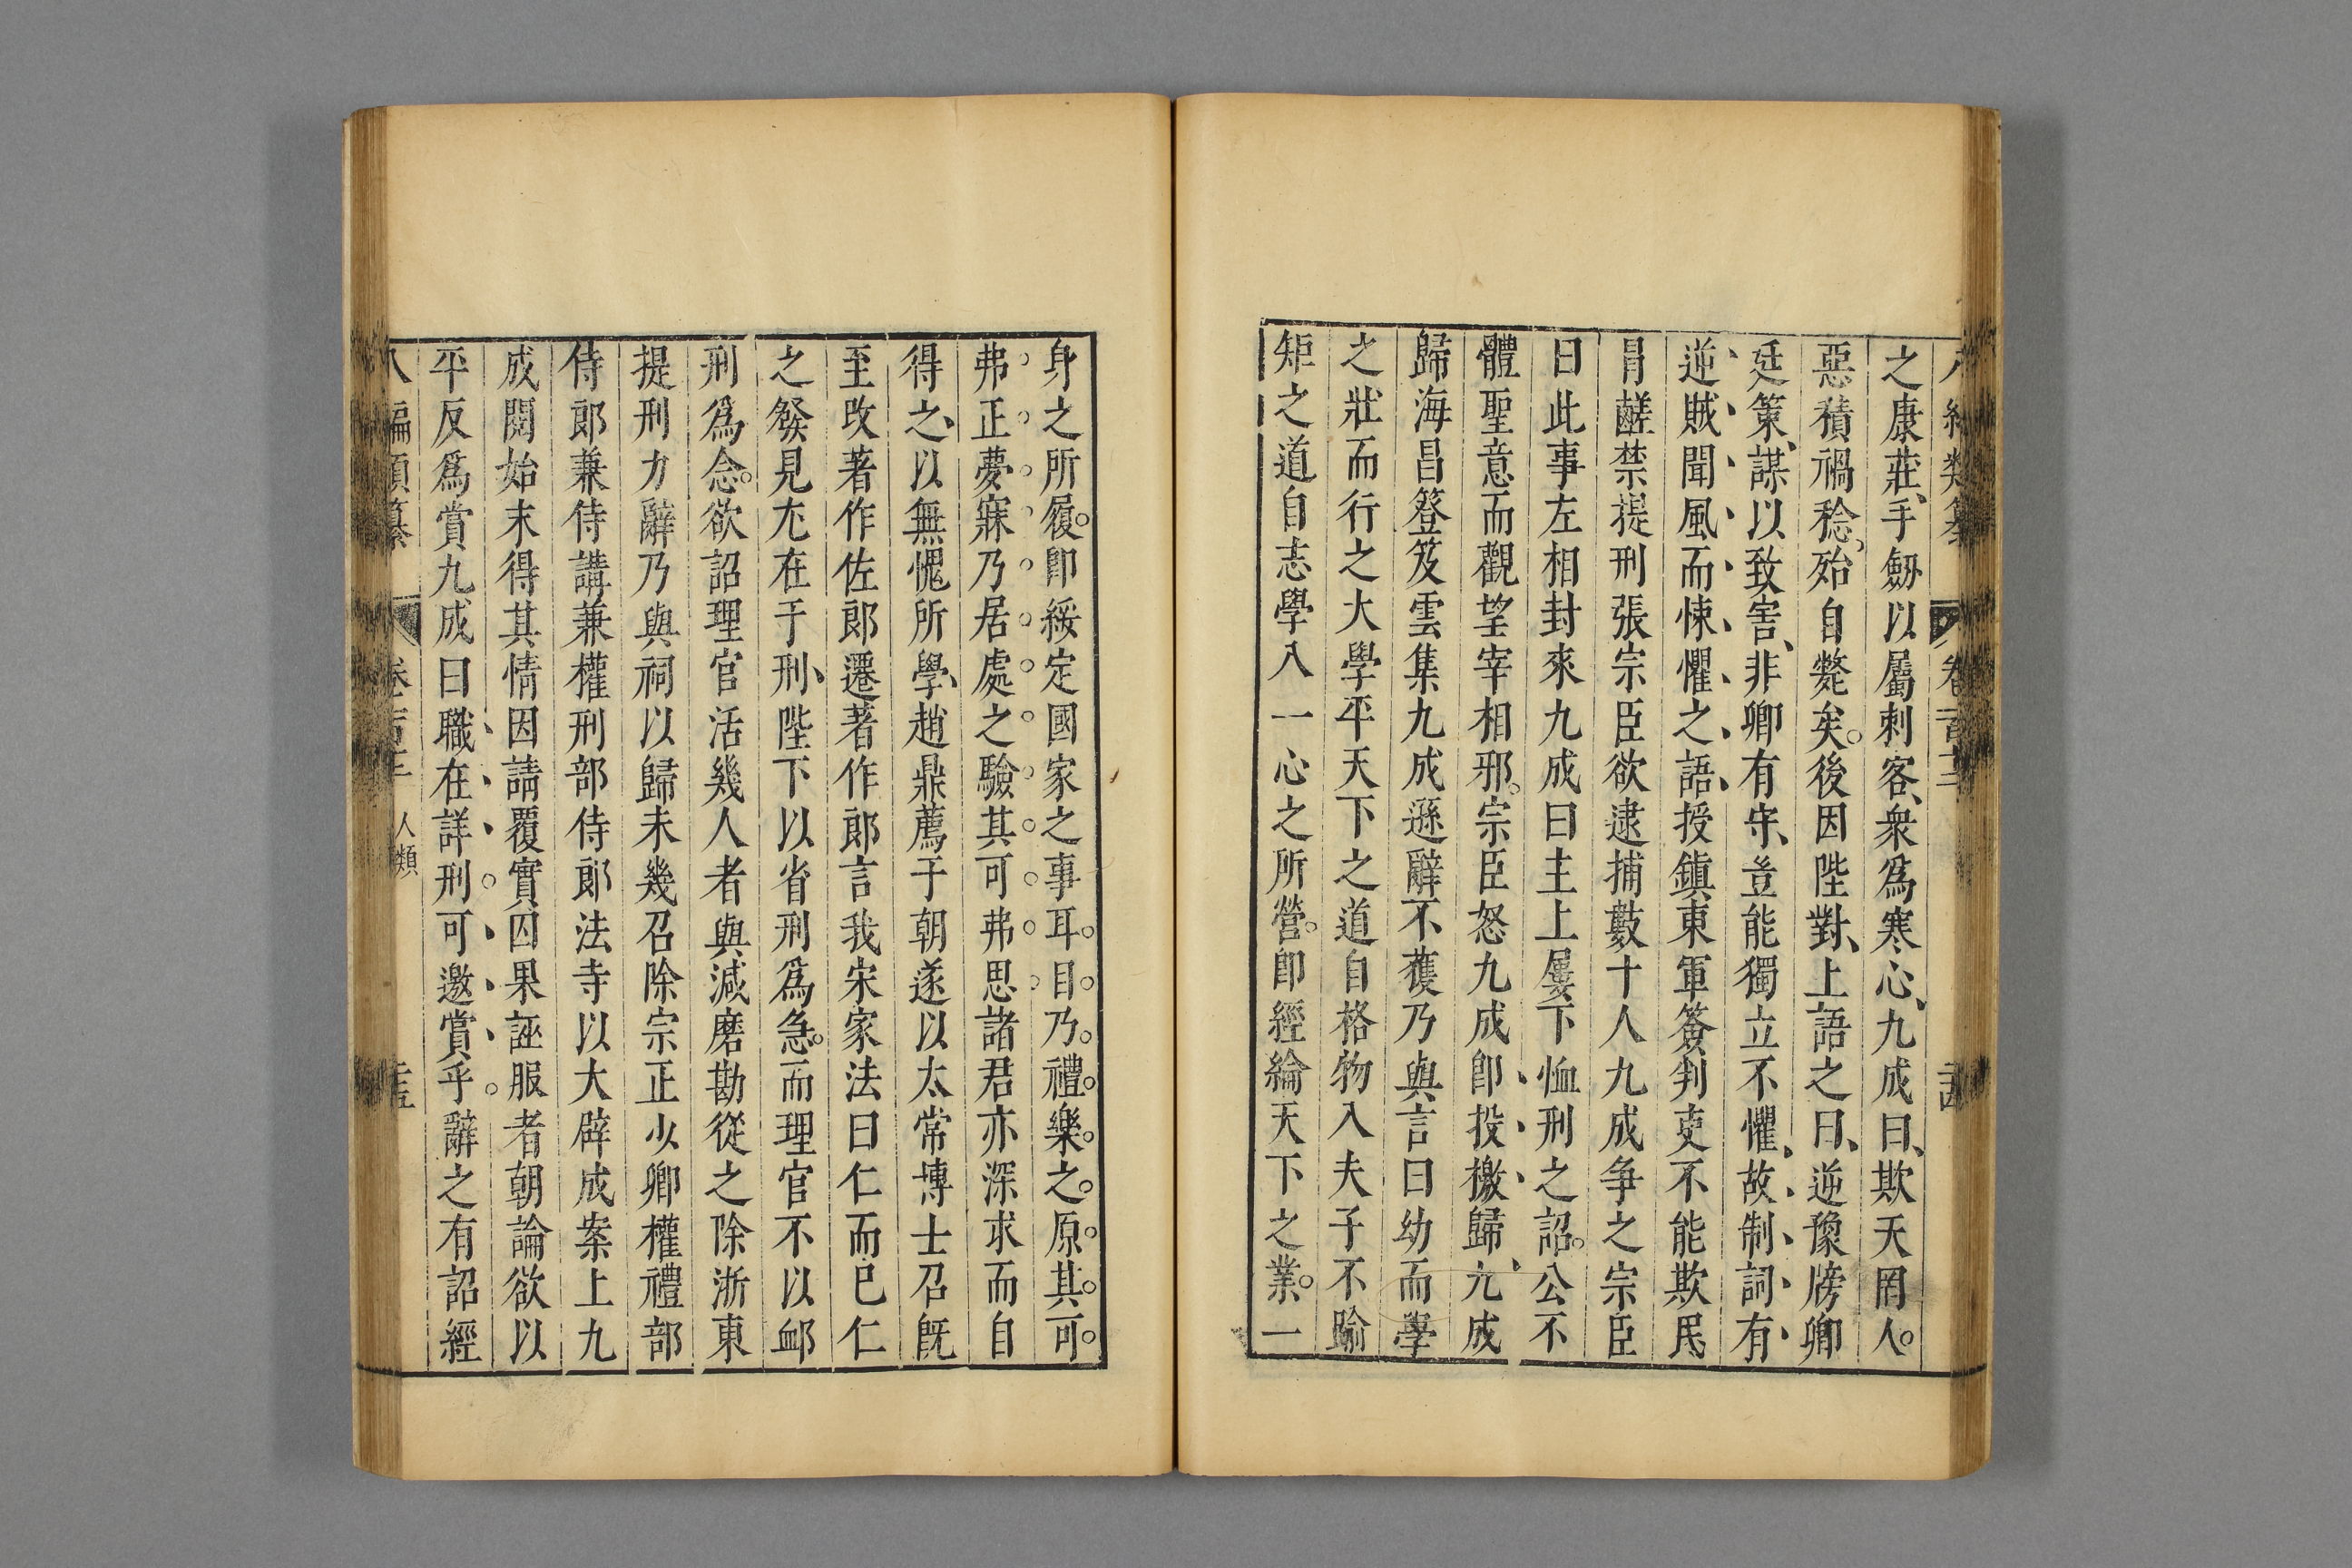 八編類纂 卷一百十三
之康莊手劒以屬刺客衆爲寒心九成曰欺天罔人
惡積禍稔殆自斃矣後因陛對上語之曰逆豫牓卿
廷策謀以致害非卿有守豈能獨立不懼故制詞有
逆賊聞風而悚懼之語授鎮東軍簽判吏不能欺民
冐鹺禁提刑張宗臣欲逮捕數十人九成争之宗臣
曰此事左相封來九成曰主上屢下恤刑之詔公不
體聖意而觀望宰相邪宗臣怒九成卽投檄歸九成
歸海昌簦笈雲集九成遜辭不獲乃與言曰幼而學
之壯而行之大學平天下之道自格物入夫子不踰
矩之道自志學入一心之所營卽經綸天下之業一
身之所履卽綏定國家之事耳目乃禮樂之原其可
弗正夢寐乃居處之驗其可弗思諸君亦深求而自
得之以無愧所學趙鼎薦于朝遂以太常博士召旣
至改著作佐郎遷著作郎言我宋家法曰仁而已仁
之發見尤在于刑陛下以省刑爲急而理官不以卹
刑爲念欲詔理官活幾人者與減磨勘從之除浙東
提刑力辭乃與祠以歸未幾召除宗正少卿權禮部
侍郎兼侍講兼權刑部侍郎法寺以大辟成案上九
成閱始末得其情因請覆實囚果誣服者朝論欲以
平反爲賞九成曰職在詳刑可邀賞乎辭之有詔經
八編類纂 卷一百十三 人類